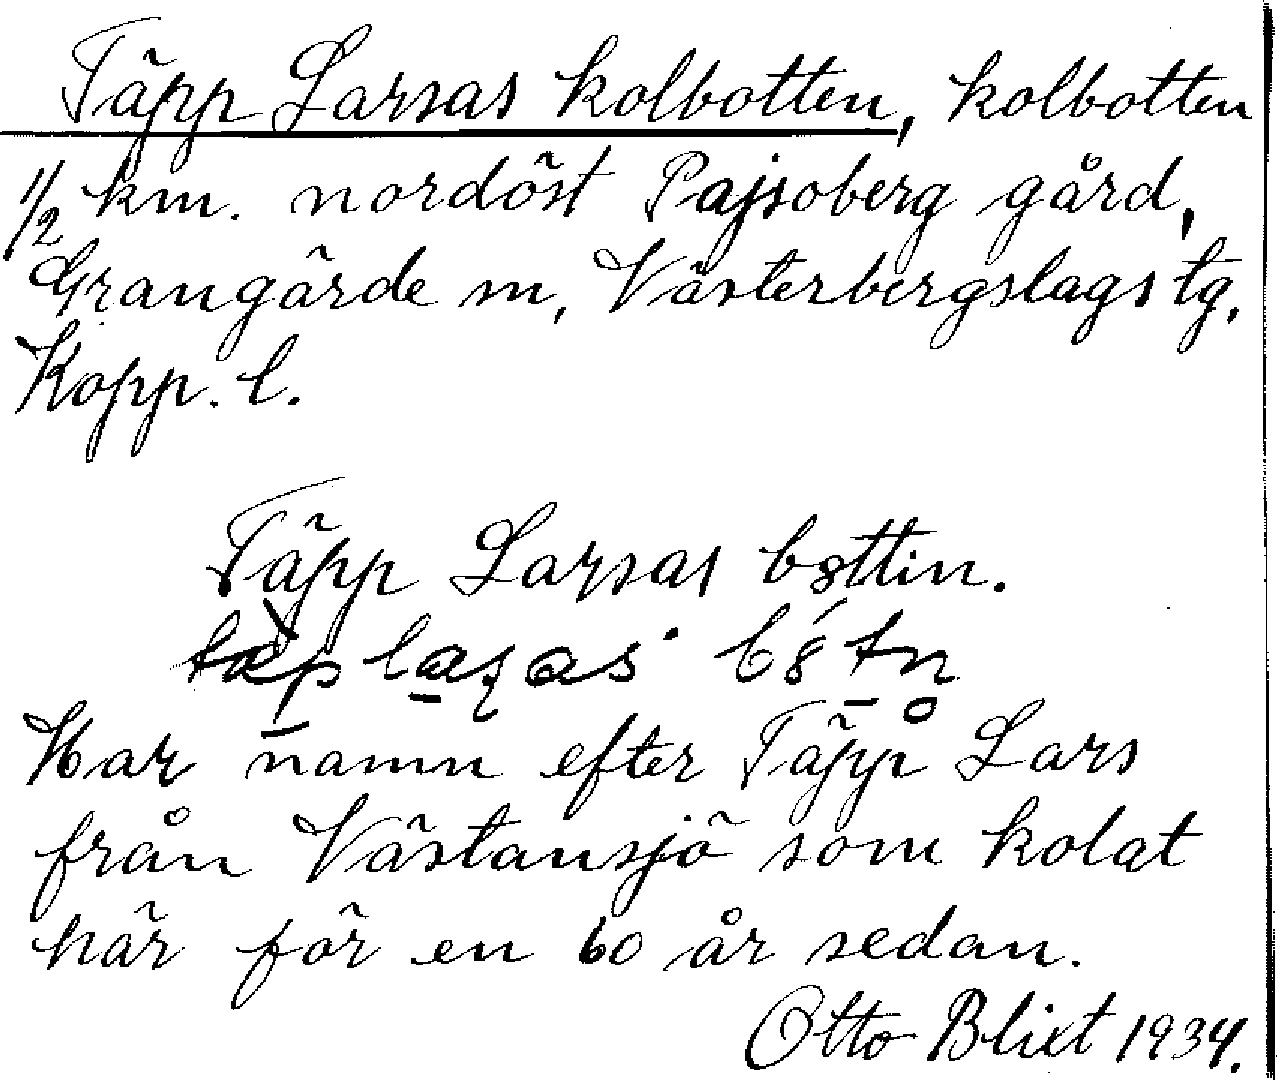 Täpp Larsas kolbotten, kolbotten
1/2 km. nordöst Pajsoberg gård,
Grangärde sn, Västerbergslags tg.
Kopp. l.
Täpp Larsas bottin.
Har namn efter Täpp Lars
från Västansjö som kolat
här för en 60 år sedan.
Otto Blixt 1934.